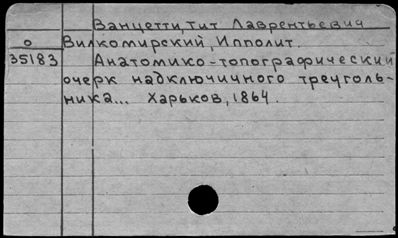 Ванцетти, Тит Лаврентьевич
о Вилкомирский, Ипполит.
35183 Анатомико-топографический
очерк надключичного треуголь-
ника... Харьков, 1864.